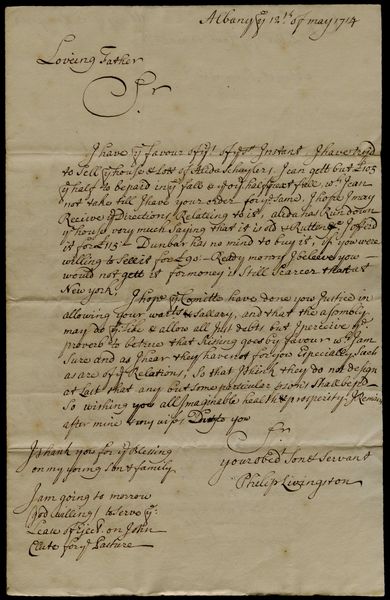 Albany ye 12th of may 1714
Loveing Father
Sr
I have ye favour of yrs of ye Instant I have tryed
to Sell ye house & Lots of Alida Schuyler, I can gett but £105
ye half to be paid in ye fall & ye oyr half next fall wch I can
not take till I have your order for ye Same. I hope I may
Recive ye Directions Relating to it, alida has Run down
ye house very much Saying that it is old & Rotten I offerd
it for £115 - Dunbar has no mind to buy it, if you were
willing to Sell it for £90 - Reddy mony I beleive you
would not gett it for money is Still Scarcer than at
New york;
I hope ye Comitte have done you Justice in
allowing your & Sallary, and that the assembly
may do ye like & allow all Just debts but I perceive ye
proverb to be true that Kissing goes by favour wch I am
Sure and as I hear they have not for you Especialy Such
as are of ye Relations, So that I think they do not design
at Last that any but Some perticular psons Shall be pd
So wishing you all Imaginable health & prosperity I Remain
after mine & my wifes Duty to you
Sr
your obedt Son & Servant
Philip Livingston
I thank you for ye Blessing
on my young Son & family
I am going to morrow
god willing to Serve ye
Lease of Eject. on John
Clute for ye Pasture